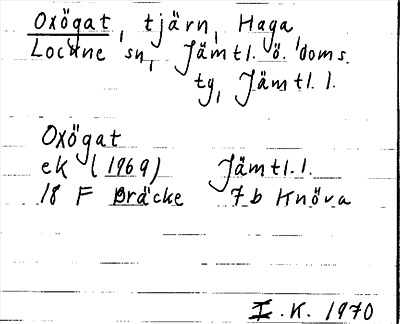 Oxögat, tjärn, Haga,
Lockne sn, Jämtl. ö. doms.
tg, Jämtl. l.
Oxögat
ek (1969) Jämtl. l.
18 F Bräcke 7b Knöva
I. K. 1970